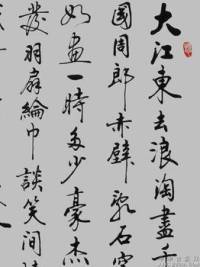 大江東去浪淘盡千
國周郎赤壁亂石穿
如畫一時多少豪杰
發羽扇綸巾談笑間